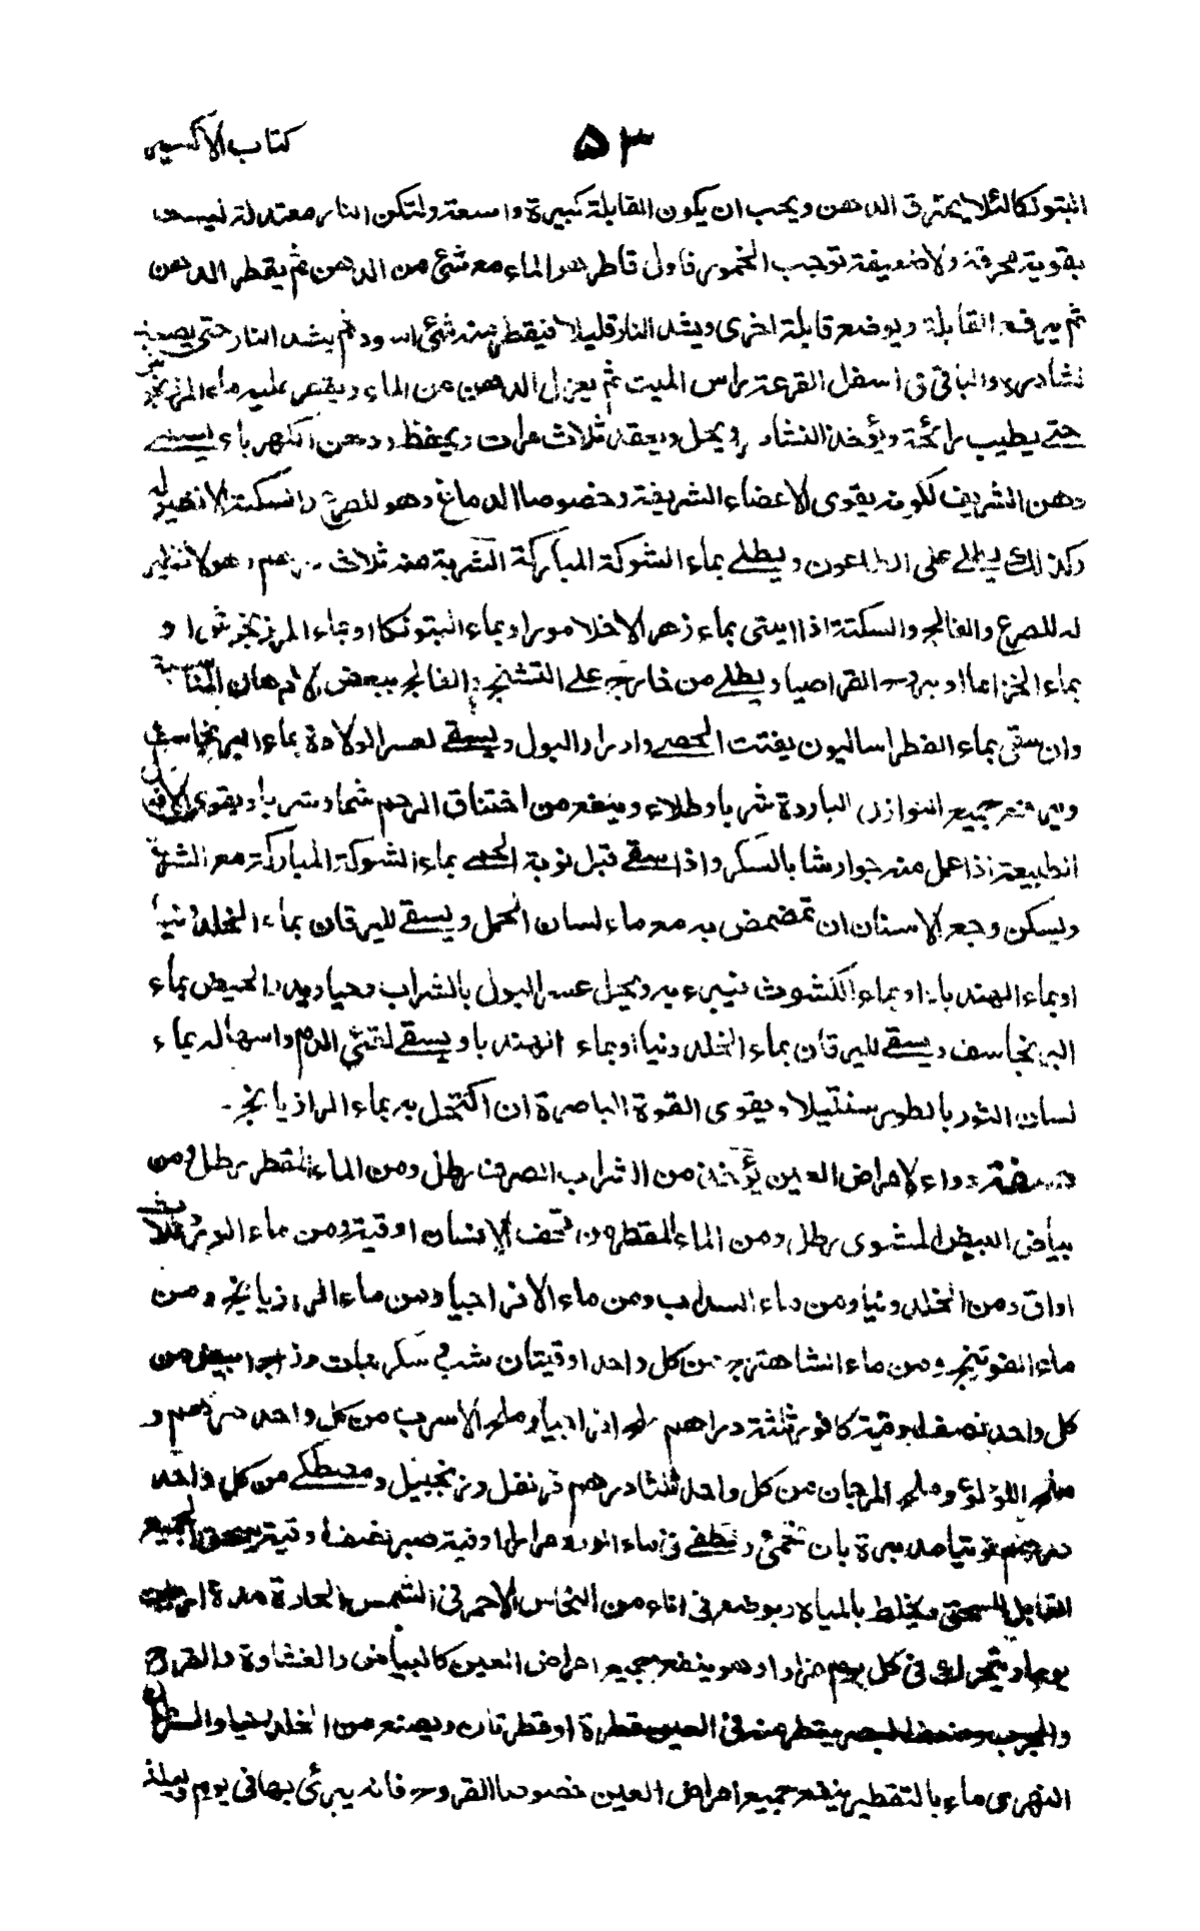 كتاب الاكسير
۵۳
البتونكا لئلا يحترق الدهن ويجب ان يكون القابلة كبيرة واسعة ولتكن النار معتدلة ليست
بقوية محرقة ولا ضعيفة توجب الخمود فاول قاطر هو الماء مع شئ من الدهن ثم يقطر الدهن
ثم يرفع القابلة ويوضع قابلة اخرى ويشد النار قليلا فيقطر منه شئ اسود ثم يشد النار حتى يصعد
نشادره والباقى فى اسفل القرعة راس الميت ثم يعزل الدهن عن الماء ويقطر عليه ماء المرزنجوش
حتے يطيب رائحة ويؤخذ النشادر ويحل ويعقد ثلاث مرات ويحفظ ودهن الكهرباء يسمے
دهن الشريف لكونه يقوى الاعضاء الشريفة وخصوصا الدماغ وهو للصرع والسكتة لا نظير له
وكذلك يطلے على الطاعون ويطلے بماء الشوكة المباركة الشربة منه ثلاث دراهم وهو لا نظير
له للصرع والفالج والسكتة اذا سقى بماء زهر الاخلامور او بماء البتونكا او بماء المرزنجوش او
بماء الخزاما او القراصيا ويطلے من خارج علے التشنج والفالج ببعض الادهان المناسبة
وان سقى بماء الفطراساليون يفتت الحصے وادرار البول ويسقے لعسر الولادة بماء البرنجاسف
جميع النوازل الباردة شربا وطلاء وينفع من اختناق الرحم شما وشربا ويقوى الافعال
الطبيعة اذا عمل منه جوارشا بالسكر واذا سقے قبل نوبة الحمے بماء الشوكة المباركة مع الشربة
ويسكن وجع الاسنان ان تمضمض به مع ماء لسان الحمل ويسقے لليرقان بماء الخلدونيا
او بماء الهندبا او بماء الكشوث فيبرء به ويحل عسر البول بالشراب الحيض بماء
البرنجاسف ويسقے لليرقان بماء الخلدونيا او بماء الهندبا ويسقے لقئ الدم واسهاله بماء
لسان الثور ويقوى القوة الباصرة ان اكتحل به بماء الرازيانج.
صفة دواء لامراض العين يؤخذ من الشراب الصرف رطل ومن الماء المقطر رطل ومن
بياض البيض المشوى رطل ومن الماء المقطر من قحف الانسان اوقية ومن ماء الورد ثلاث
اواق ومن الخلدونيا ومن ماء السداب ومن ماء الافراجيا ومن ماء الرازيانج ومن
ماء الفوتنج ومن ماء الشاهترج من كل واحد اوقيتان شب سكر نبات وزاج ابيض من
كل واحد نصف اوقية كافور ثلثة دراهم ملح وملح الاسرب من كل واحد درهم و
ملح اللؤلؤ وملح المرجان من كل واحد ثلثا درهم قرنفل وزنجبيل ومصطكے من كل واحد
درهم توتيا مدبرة بان تحمئ وتطفے فى ماء الورد مرارا اوقية صبر نصف اوقية يسحق الجميع
القابل للسحق ويخلط بالمياه ويوضع فى اناء من النحاس الاحمر فى الشمس الحارة مدة
يوما ويتحرك فى كل يوم مرارا وهو ينفع جميع امراض العين كالبياض والغشاوة والقروح
والجرب وضعف البصر يقطر منه فى العين قطرة او قطرتان ويصنع من الخلدونيا
النهرى ماء بالتقطير ينفع جميع امراض العين خصوصا القروح فانه يبرئ بها فى يوم وليلة